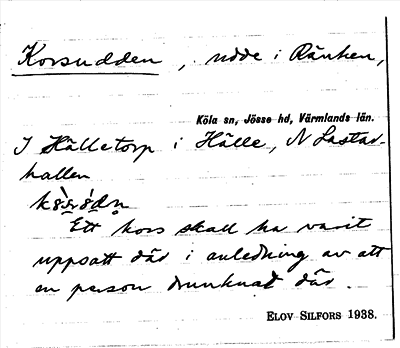 Korsudden, udde i Ränken,
Köla sn, Jösse hd, Värmlands län.
I Hälletorp i Hälle, N Lastad-
hallen
Ett kors skall ha varit
uppsatt där i anledning av att
en person drunknat där.
ELOV SILFORS 1938.